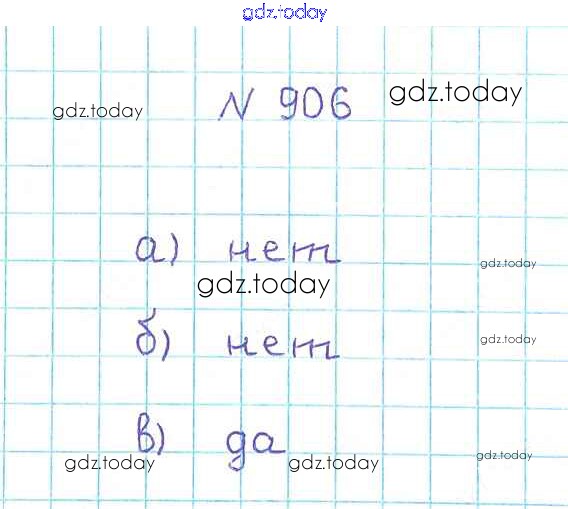 gdz.today
№ 906
gdz.today
gdz.today
а) нет
gdz.today
gdz.today
б) нет
gdz.today
в) да
gdz.today
gdz.today
gdz.today